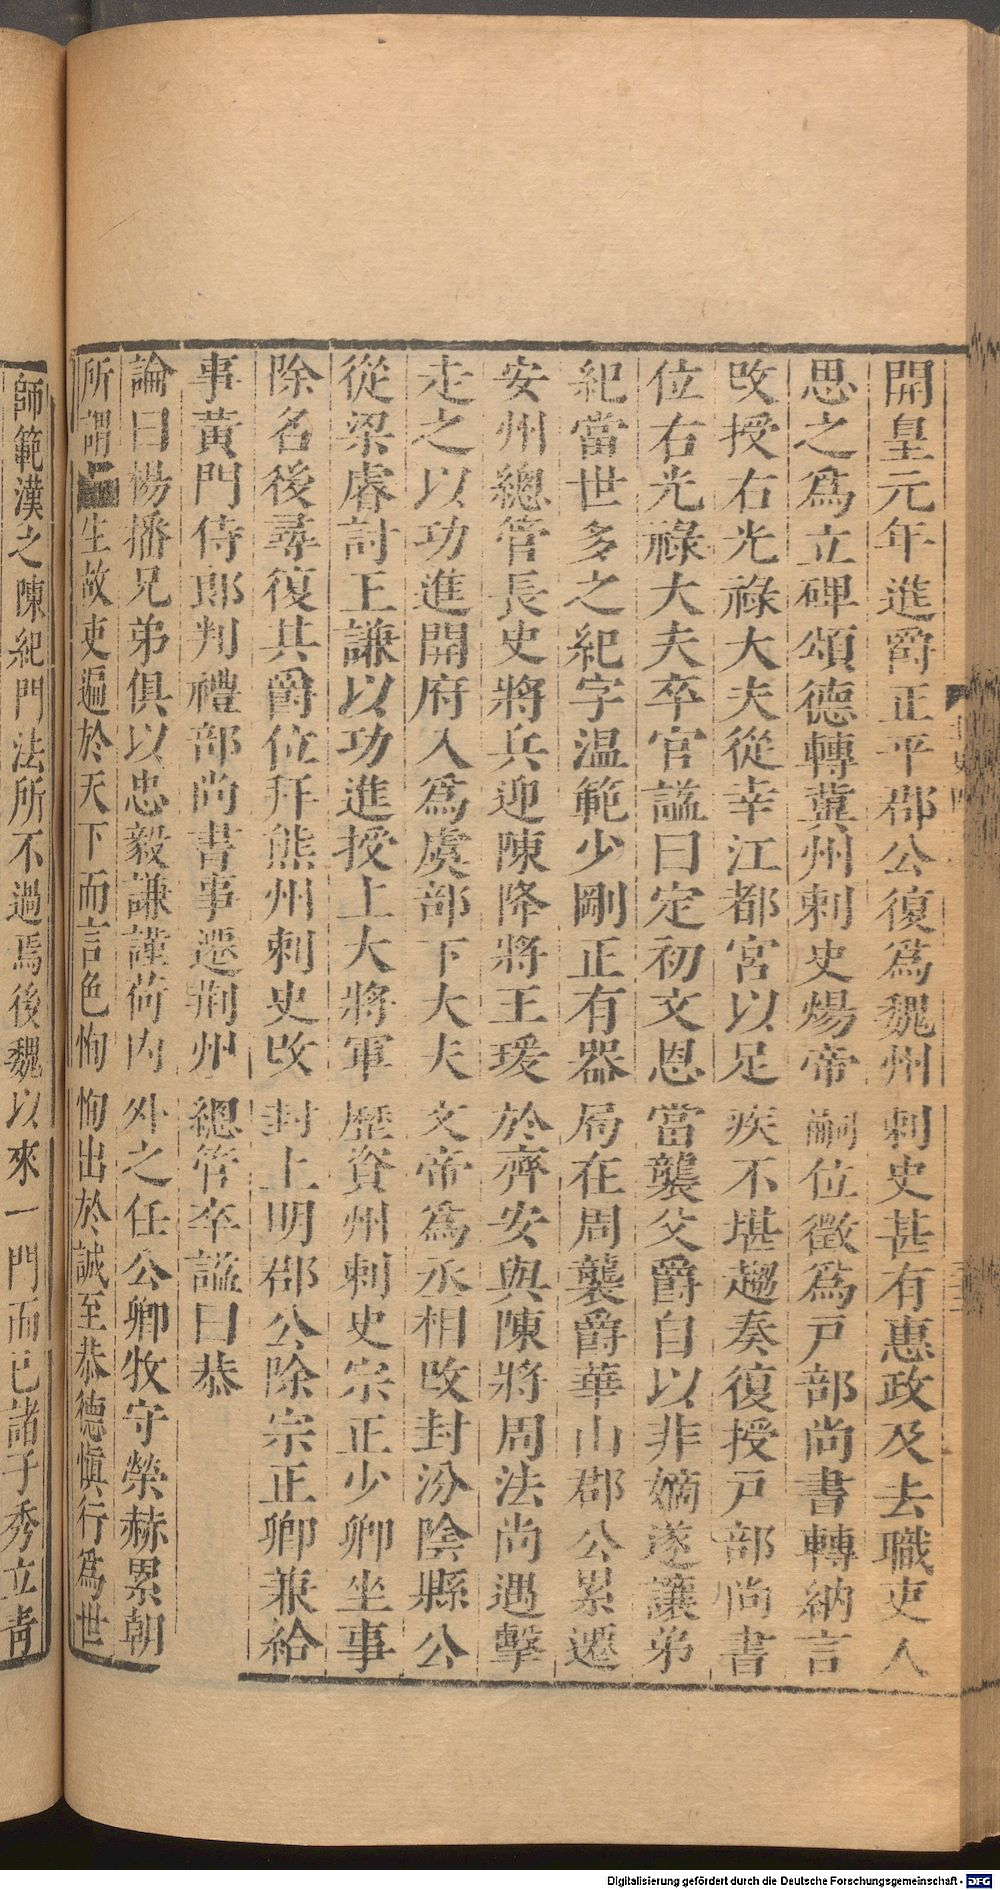 開皇元年進爵正平郡公復爲魏州刺史甚有惠政及去職吏人
思之爲立碑頌德轉冀州刺史煬帝嗣位徵爲戸部尚書轉納言
改授右光祿大夫從幸江都宮以足疾不堪趨奏復授戸部尚書
位右光祿大夫卒官諡曰定初文恩當襲父爵自以非嫡遂讓弟
紀當世多之紀字温範少剛正有器局在周襲爵華山郡公累遷
安州總管長史將兵迎陳降將王瑗於齊安與陳將周法尚遇擊
走之以功進開府入爲虞部下大夫文帝爲丞相改封汾陰縣公
從梁睿討王謙以功進授上大將軍歷資州刺史宗正少卿坐事
除名後尋復其爵位拜熊州刺史改封上明郡公除宗正卿兼給
事黃門侍郎判禮部尚書事遷荆州總管卒諡曰恭
論曰楊播兄弟俱以忠毅謙謹荷内外之任公卿牧守榮赫累朝
所謂生故吏遍於天下而言色恂恂出於誠至恭德愼行爲世
師範漢之陳紀門法所不過焉後魏以來一門而已諸子秀立青
Digitalisierung gefördert durch die Deutsche Forschungsgemeinschaft - DFG